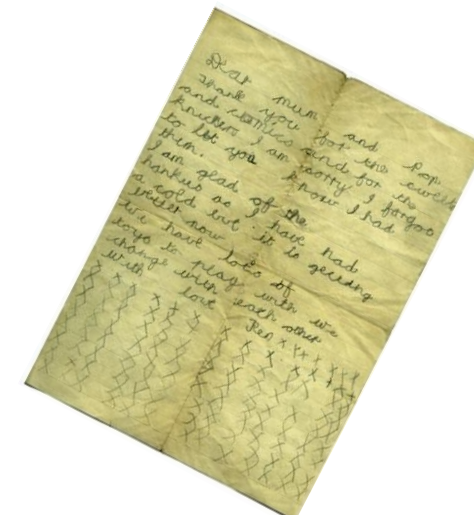 Dear mum and Pop.
Thank you for the sweets
and comics and for the
knickers I am sorry I forgot
to let you know I had
them.
I am glad of the
hankus as I have had
a cold but it is getting
better now.
We have lots of
toys to play with we
change with each other
with love
Ken x x x x x x x